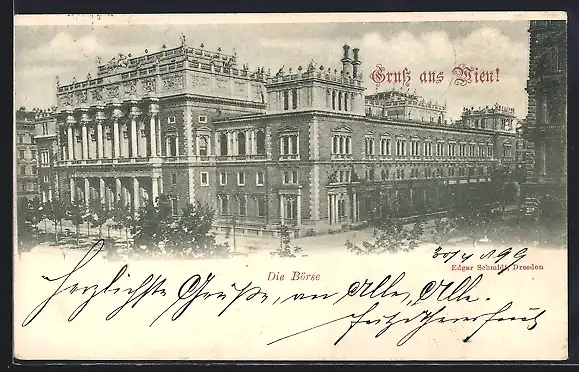 Gruß aus Wien!
30/4 1899
Die Börse
Edgar Schmidt, Dresden
Herzlichste Grüße, an Alle, Alle.
Fritz